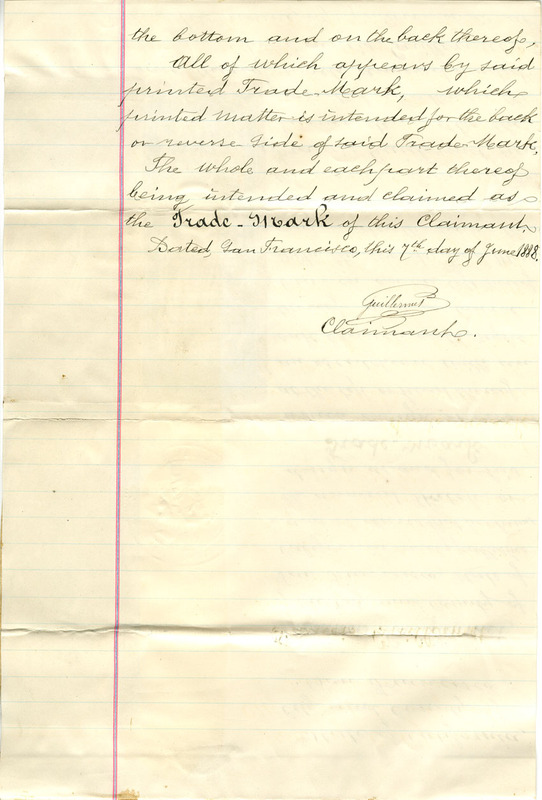 the bottom and on the back thereof,
All of which appears by said
printed Trade-Mark, which
printed matter is intended for the back
or reverse side of said Trade-Mark,
The whole and each part thereof
being intended and claimed as
the Trade-Mark of this Claimant
Dated, San Francisco, this 7th day of June 1888.
Guillemet
Claimant.